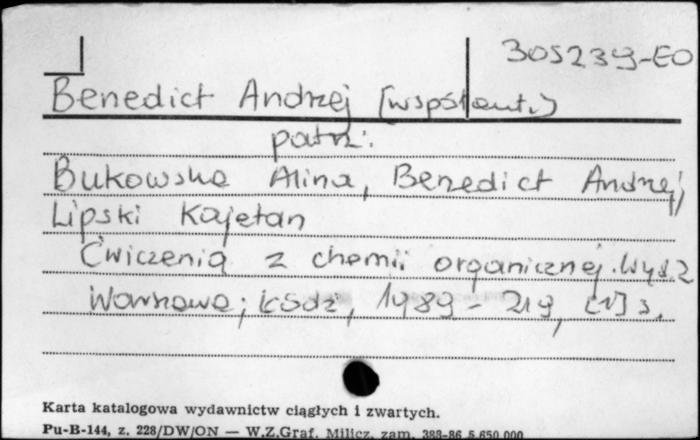 305239-EO
Benedict Andrzej (współaut.)
patrz:
Bukowska Alina, Benedict Andrzej,
Lipski Kajetan
Ćwiczenia z chemii organicznej. Wyd. 2
Warszawa; Łódź, 1989 - 219, [1] s.
Karta katalogowa wydawnictw ciągłych i zwartych.
Pu-B-144, z. 228/DW/ON — W.Z.Graf. Milicz, zam. 388-86 5.650.000